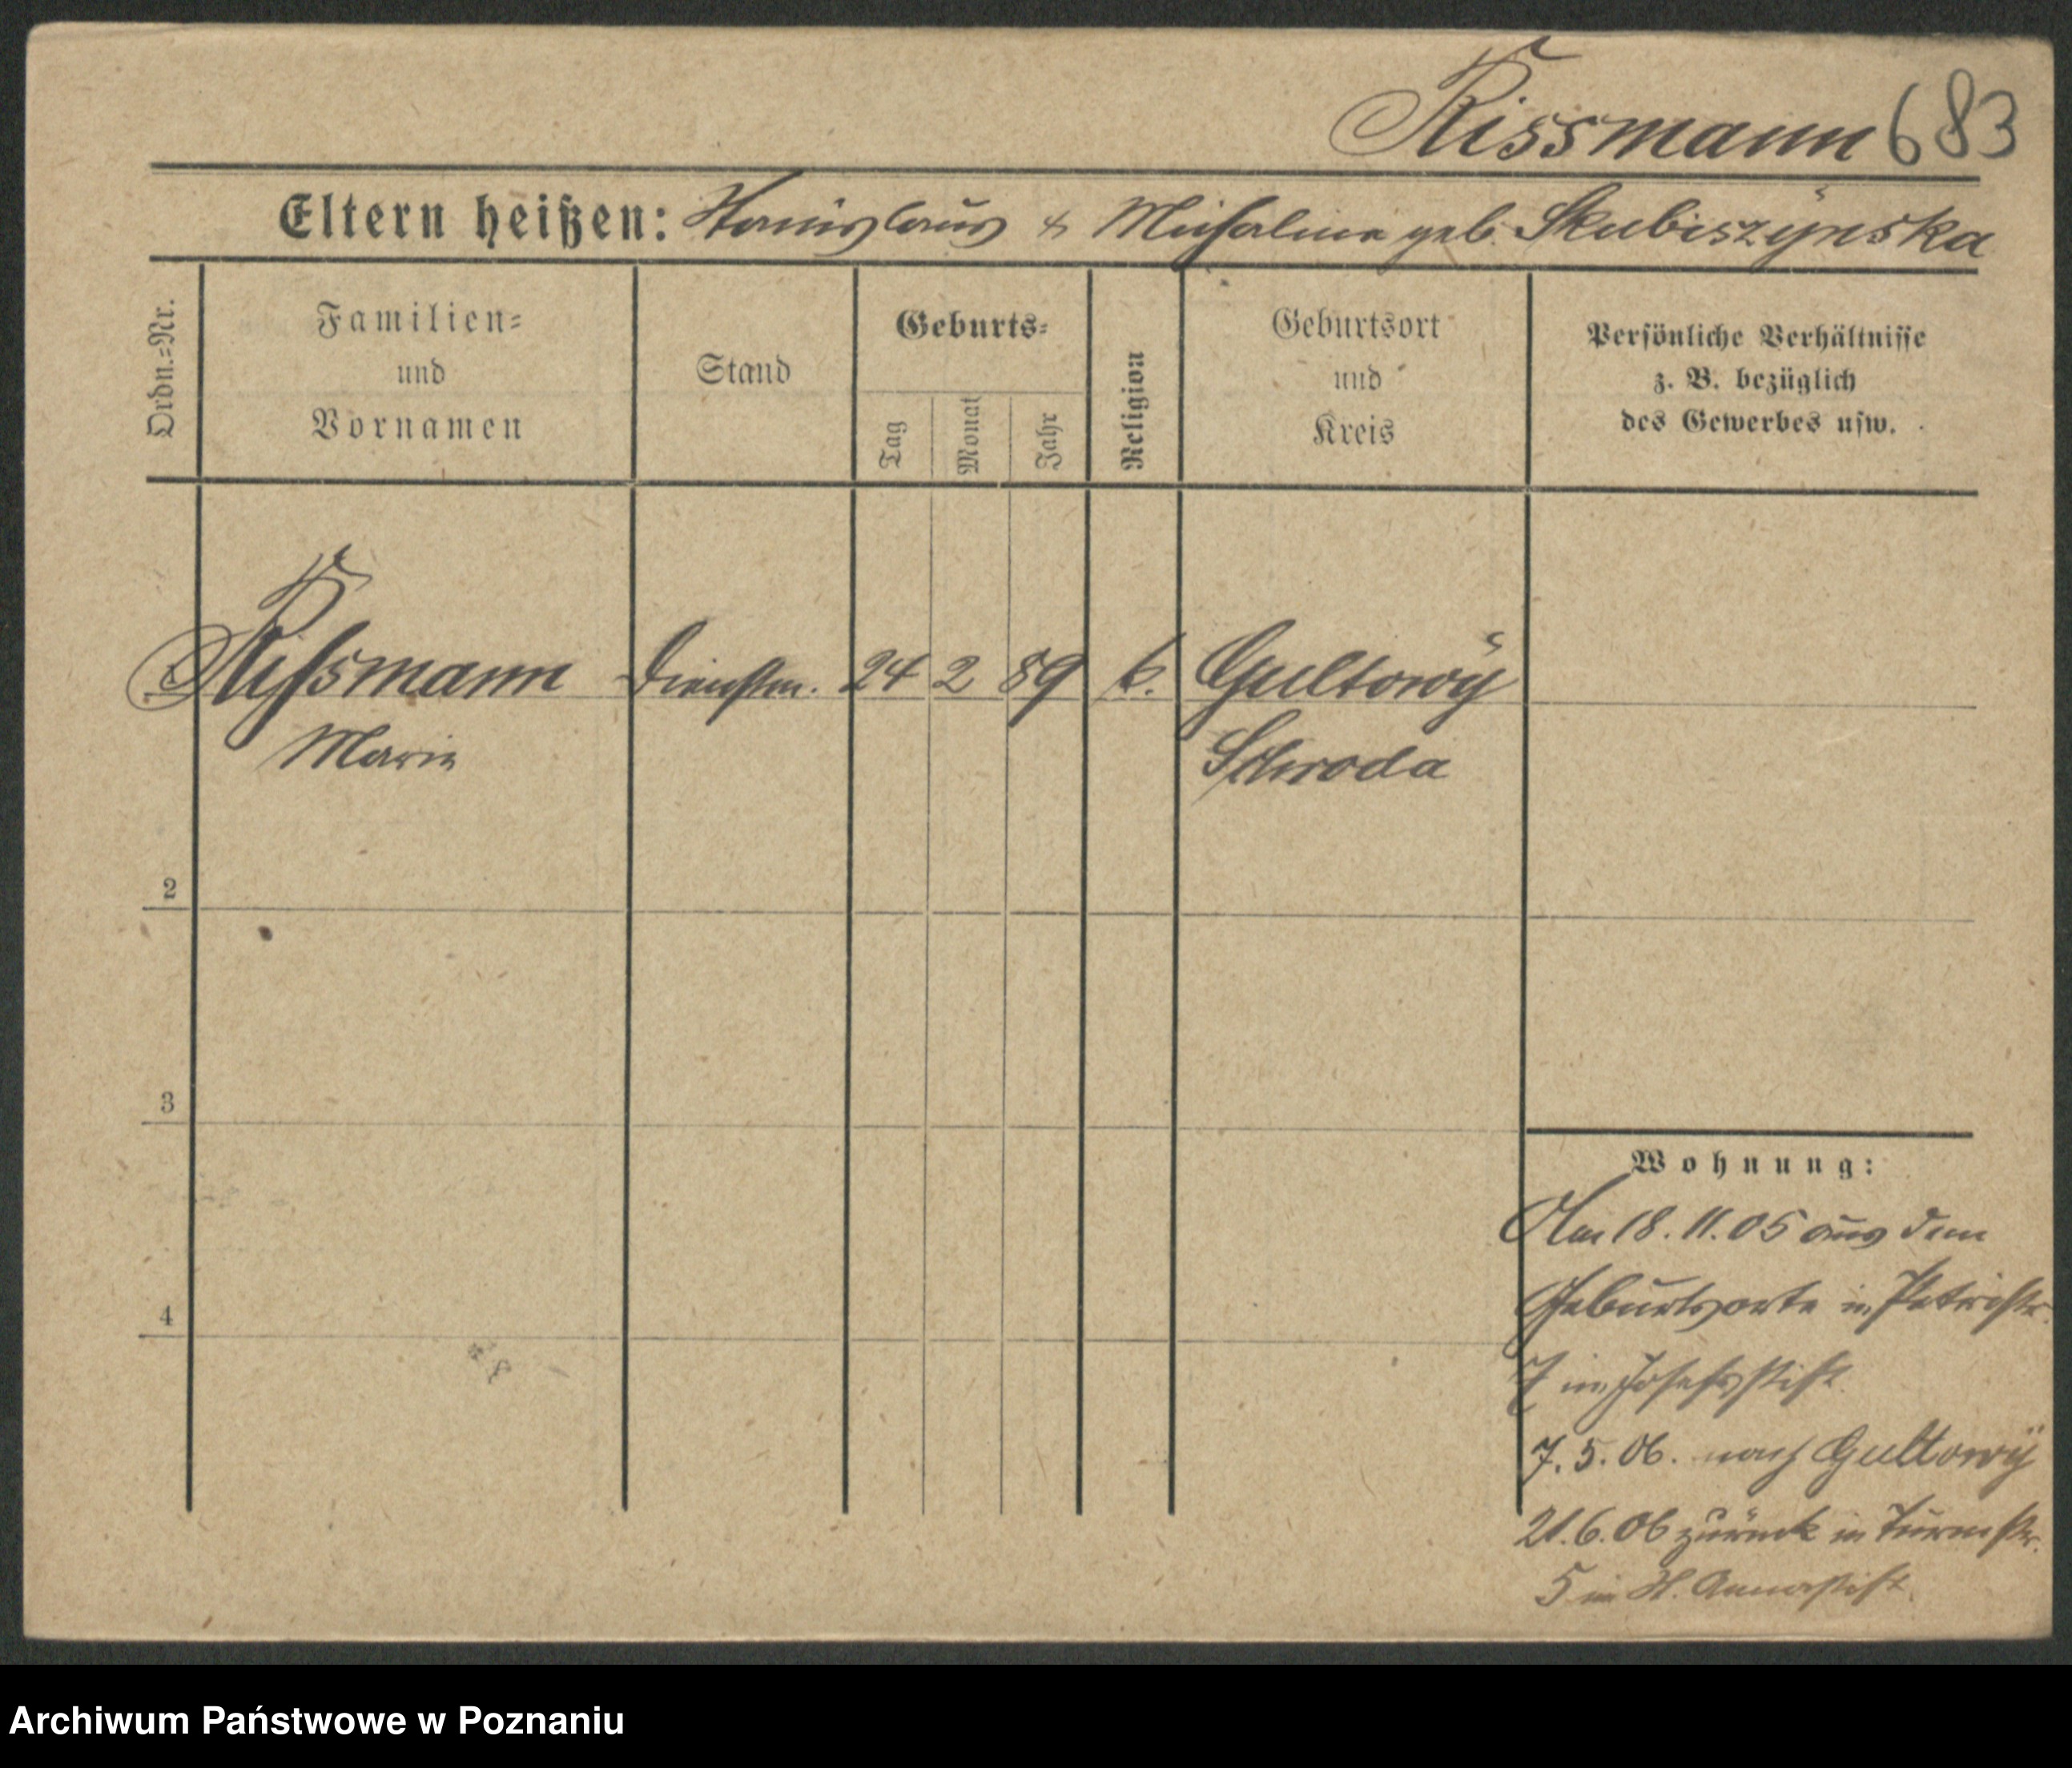 Rissmann 683
Eltern heißen: Stanislaus & Michalina geb. Skubiszynska
Ordn.=Nr.
Familien=
und
Vornamen
Stand
Geburts=
Tag
Monat
Jahr
Religion
Geburtsort
und
Kreis
Persönliche Verhältnisse
z. B. bezüglich
des Gewerbes usw.
Rissmann Dienstm. 24 2 89 k. Gultowÿ
Marie Schroda
2
3
4
Wohnung:
Am 18. 11. 05 aus dem
Geburtsorte in Petristr.
7 im Josefsstift
7. 5. 06. nach Gultowÿ
21. 6. 06 zurück in Turmstr.
5 im St. Annastift